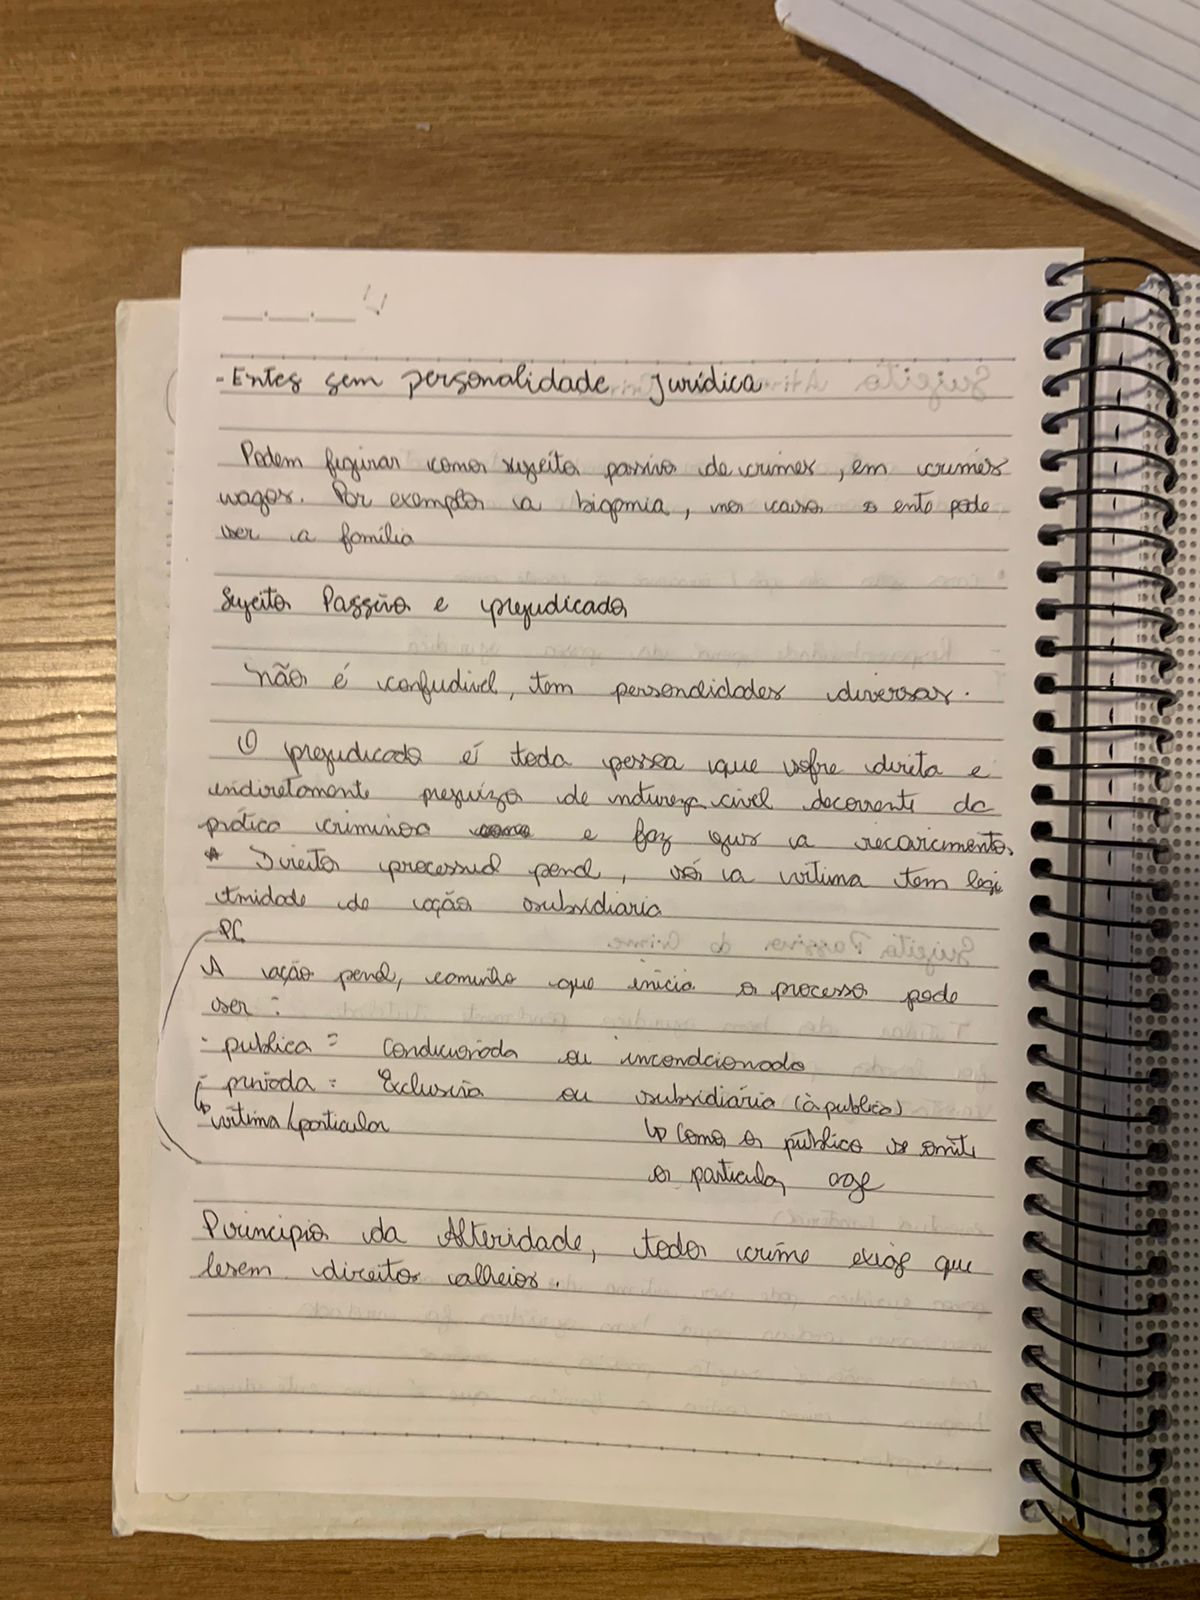 - Entes sem personalidade jurídica
Podem figurar como sujeito passivo de crimes, em crimes
vagos. Por exemplo a bigamia, no caso o ente pode
ser a família
Sujeito Passivo e prejudicado
Não é confudível, tem personalidades diversas.
O prejudicado é toda pessoa que sofre direta e
indiretamente prejuízo de natureza civel decorrente da
prática criminosa e faz jus a recarcimento.
* Direito processual penal, só a vítima tem legi
timidade de ação subsidiaria
PC
A ação penal, caminho que inicia o processo pode
ser :
- publica = Condicionada ou incondcionada
- privada = Exclusiva ou subsidiária (à publica)
↳ vítima/particular ↳ Como o público se omite
o particular age
Principio da Alteridade, todo crime exige que
lesem direitos alheios.